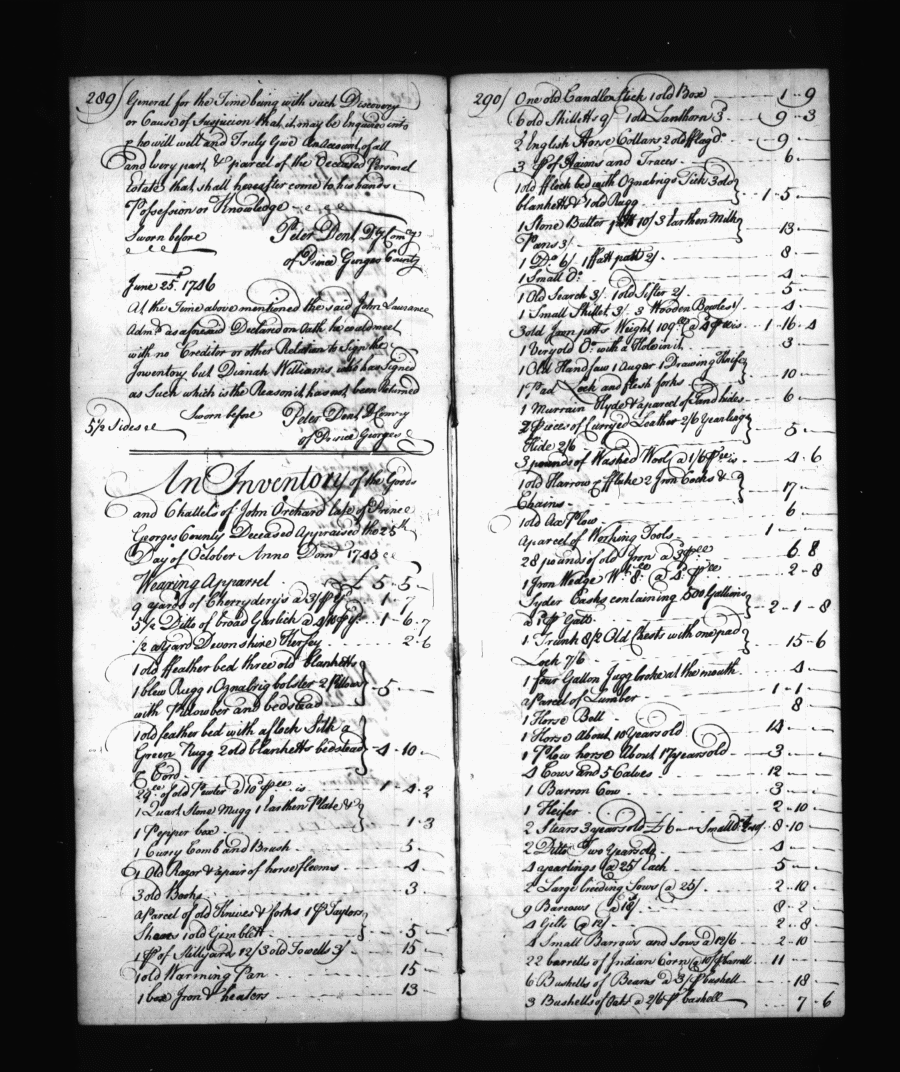 289
General for the Time being with such Discovery
or Cause of Suspicion that it may be Enquired into
& he will well and Truly Give an Account of all
and every part & parcel of the Deceased Personal
Estate that shall hereafter come to his hands
Possession or Knowledge
Sworn before Peter Dent Dty Comry
of Prince Georges County
June 25th 1746
At the Time above mentioned the said John Lawrance
Admr as aforesaid Declared on Oath he could meet
with no Creditor or other Relation to Sign the
Inventory but Dianah Williams who has Signed
as Such which is the Reason it has not been Returned
Sworn before Peter Dent D Comry
5 1/2 Sides
of Prince Georges
An Inventory of the Goods
and Chattels of John Orchard late of Prince
Georges County Deceased Appraised the 25th
Day of October Anno Domi 1745
Wearing Apparel £ 5 - 5 -
9 yards of Cherryderys a 3/ pr yd 1 - 7
5 1/2 Ditto of broad Garlich a 4/10 p yd 1 - 6 - 7
1/2 a Yard Devonshire Kersey 2 - 6
1 old ffeather bed three old blanketts
1 blew Rugg 1 Oznabrig bolster 2 Pillows
with Pillowber and bedstead 5 -
1 old feather bed with a flock
Green Rugg 2 old blanketts bedstead 4 - 10 -
& Cord
29 lb of old Pewter a 10 p lb is 1 - 4 - 2
1 Quart Stone Mugg 1 Earthen Plate &
1 Pepper box 1 - 3
1 Curry Comb and Brush 5 -
4 Old Razor & a pair of horse fleems 4
3 old Books 3
a Parcel of old Knives & forks 1 pr Taylors
Shears 1 old Gimblett 5 -
1 pr of Stillyard 12/ 3 old Towells 3/ 15
1 old Warming Pan 15
1 box Iron & heaters 13
290
One old Candlestick 1 old Box 1 - 9
6 old Skilletts 9/ 1 old Lanthorn 3 9 - 3
2 English Horse Collars 2 old 9 -
3 pr of Haims and Traces 6
1 old fflock bed with Oznabrigs Tick 3 old
blanketts & 1 old Rugg 1 - 5 -
1 Stone Butter pott 10/ 3 Earthen Milk
Pans 3/ 13
1 Do 6/ 1 ffatt pott 2/ 8
1 Small Do 4
1 Old Search 3/ 1 old Sifter 2/ 5
1 Small Skillet 3/ 3 Wooden Bowles 1/ 4
3 old Iron potts Weight 109 lb a 4 p lb is 1 - 16 - 4
1 Very old Do with a Hole in it 3
1 Old Hand saw 1 Augur 1 Drawing Knife
1 Pad Lock and flesh forks 10
1 Murrain Hyde & a parcel of Cand hides 6
2 Pieces of Curryed Leather 2/6 Yearling
Hide 2/6 5 -
3 pounds of Washed Wool a 1/6 p lb is 4 - 6
1 old Harrow 2 Iron Cocks &
Chains 17
1 old Ox Plow 6
a parcel of Working Tools 1
28 pounds of old Iron a 3 p lb 6 8
1 Iron Wedge Wt 8 lb a 4 p lb 2 - 8
Syder Casks containing 500 Gallons
a 1 p Gall 2 - 1 - 8
1 Trunk 8/ 2 Old Chests with one pad
Lock 7/6 15 - 6
1 four Gallon Jugg broke at the mouth 4
a Parcel of Lumber 1 - 1
1 Horse Bell 8
1 Horse About 10 Years old 14
1 Plow horse About 17 years old 3
4 Cows and 5 Calves 12
1 Barron Cow 3
1 Heifer 2 - 10
2 Stears 3 years old £6 Small 8 - 10
2 Ditto Two Years old 4
4 yearlings @ 25/ Each 5
2 Large breeding Sows @ 25/ 2 - 10
9 Barrows @ 18/ 8 - 2
4 Gilts @ 12/ 2 - 8
4 Small Barrows and Sows @ 12/6 2 - 10
22 barrells of Indian Corn @ 10/ p barrell 11
6 Bushells of Beans a 3/ p bushell 18
3 Bushells of Oats a 2/6 p bushell 7 - 6